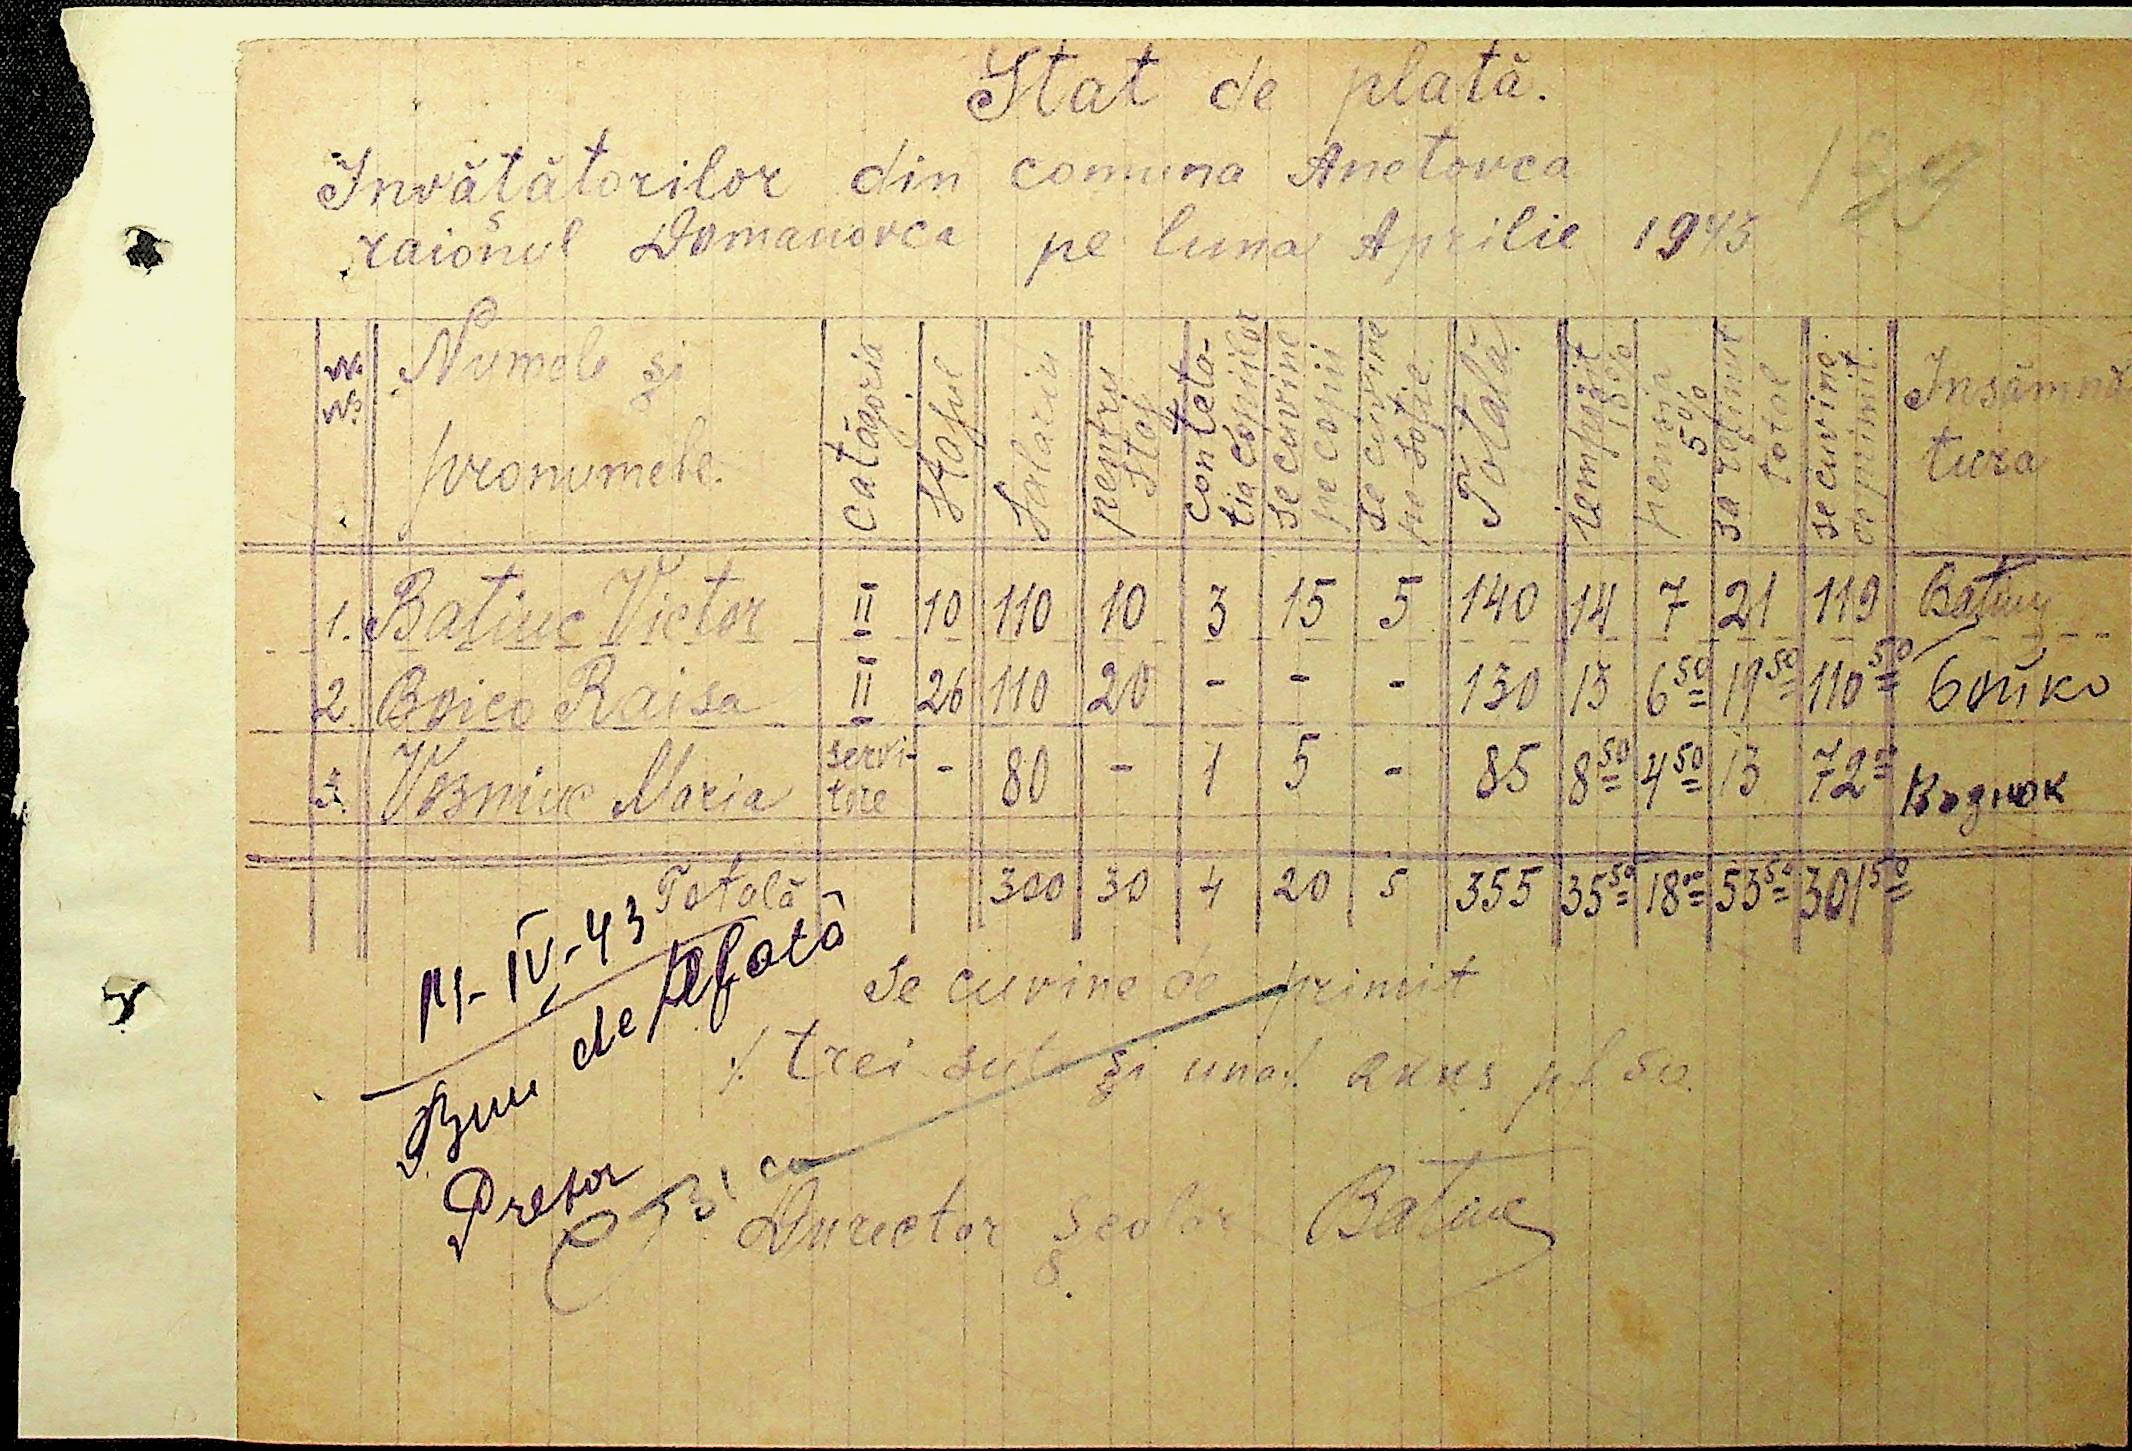 Stat de plată.
Invătătorilor din comuna Anetovca
raionul Domanovca pe luna Aprilie 1943
№ № Numele și pronumele. catăgoria Stajul Salariu pentru staj contetatia copiilor se cuvine pe copii se cuvine pe soție Totală. 10% pensia 5% sa reținut total se cuvine de primit. Insămnătura
1. Batiuc Victor II 10 110 10 3 15 5 140 14 7 21 119 Batiuc
2. Boico Raisa II 26 110 20 - - - 130 13 6 50 19 50 110 50 Бойко
3. Vozniuc Maria servitore - 80 - 1 5 - 85 8 50 4 50 13 72 00 Вознюк
Totală 300 30 4 20 5 355 35 50 18 00 53 50 301 50
Se cuvine de primit
/. trei sute și una/. RKKS pf 50.
Director Școlar Batiuc
14-IV-43
Bun de plată
Pretor